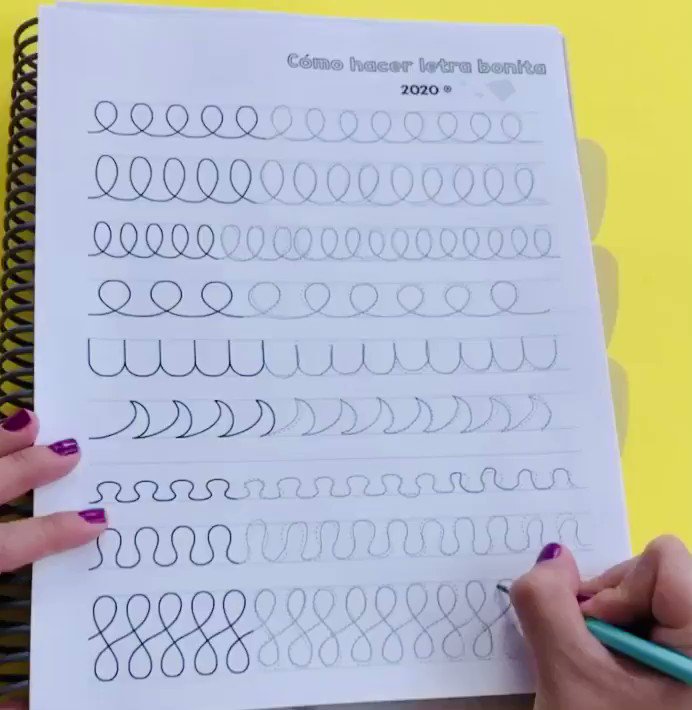 Cómo hacer letra bonita
2020 ®